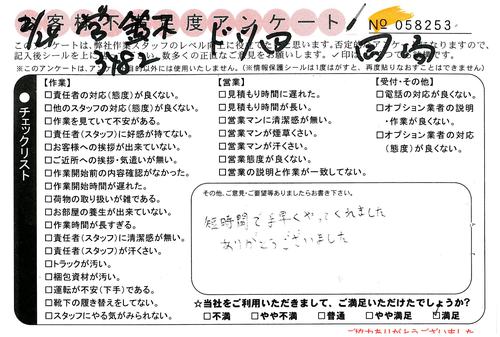 お客様不満度アンケート!
No 058253
2/18 営 鈴木
3982
このアンケートは、弊社作業スタッフのレベル向上に
記入後シールを上に
※このアンケートは、
以外には使用いたしません。(※情報保護シールは1度はがすと、再度貼りなおすことはできません)
チェックリスト
【作業】
□責任者の対応(態度)が良くない。
□他のスタッフの対応(態度)が良くない。
□作業を見ていて不安がある。
□責任者(スタッフ)に好感が持てない。
□お客様への挨拶が出来ていない。
□ご近所への挨拶・気遣いが無い。
□作業開始前の内容確認がなかった。
□作業開始時間が遅れた。
□荷物の取り扱いが雑である。
□お部屋の養生が出来ていない。
□作業時間が長すぎる。
□責任者(スタッフ)に清潔感が無い。
□責任者(スタッフ)が汗くさい。
□トラックが汚い。
□梱包資材が汚い。
□運転が不安(下手)である。
□靴下の履き替えをしてない。
□スタッフにやる気がみられない。
【営業】
□見積もり時間に遅れた。
□見積もり時間が長い。
□営業マンに清潔感が無い。
□営業マンが煙草くさい。
□営業マンが汗くさい。
□営業態度が良くない。
□営業の説明と作業が一致してない。
【受付・その他】
□電話の対応が良くない。
□オプション業者の説明
・作業が良くない。
□オプション業者の対応
(態度)が良くない。
その他、ご意見・ご要望等ありましたらお書き下さい。
短時間で手早くやってくれました
ありがとうございました
☆当社をご利用いただきまして、ご満足いただけたでしょうか?
□不満 □やや不満 □普通 □やや満足 ☑満足
ご協力ありがとうございました